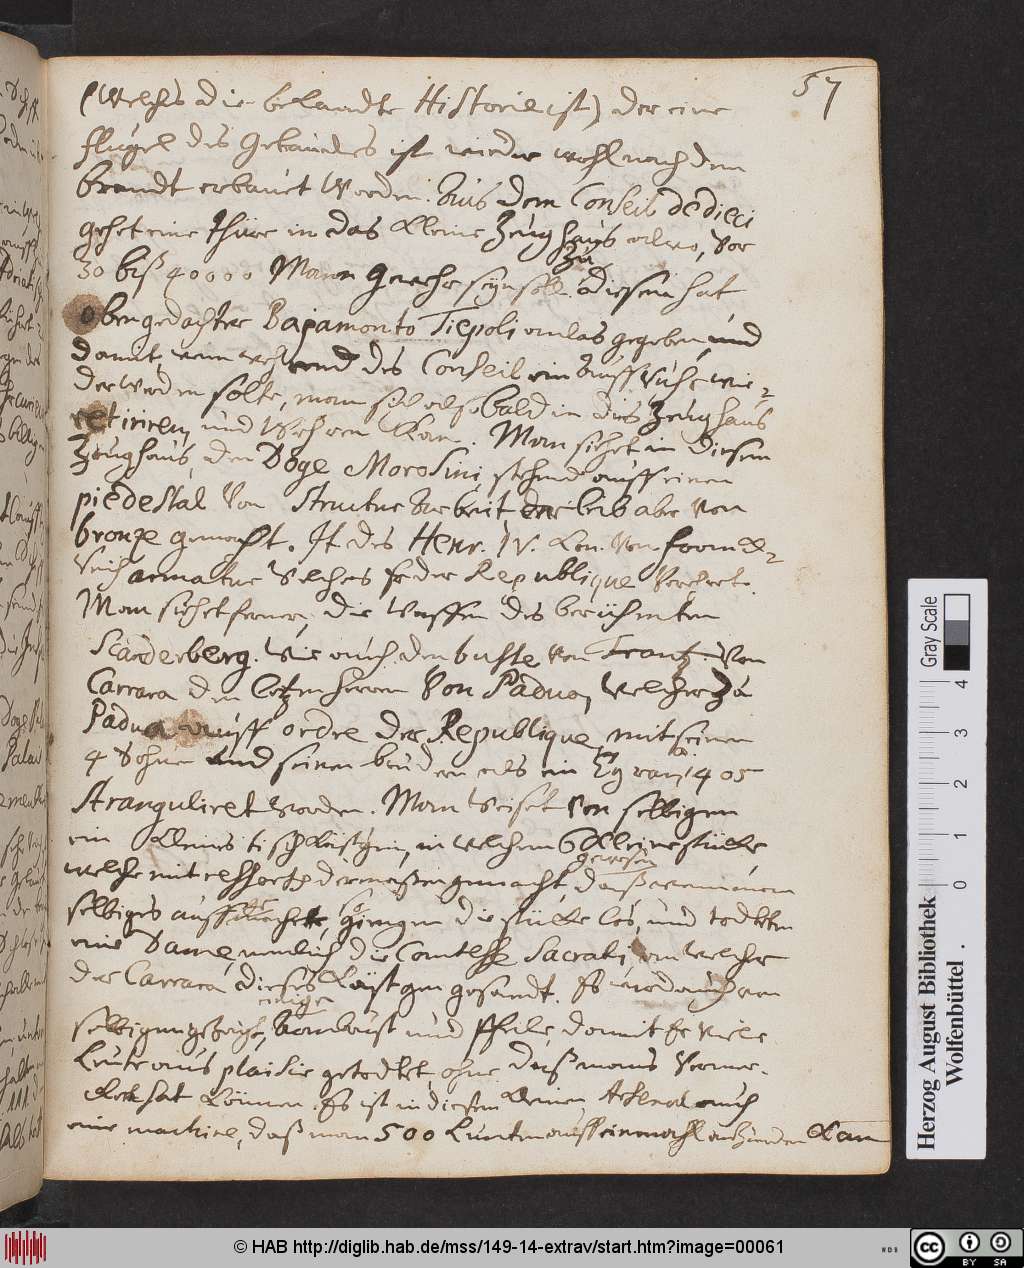 57
(Welches die bekandte Historie ist) der eine
flügel des Gebäudes ist wieder wohl nach dem
brandt erbauet worden. Aus dem Conseil de dieci
gehet eine thüre in das kleine Zeughaus alwo, vor
30 biß 40000 Mann Gewehr seyn soll. Zu diesem hat
oben gedachter Bajamonto Tiepoli anlas gegeben, und
damit, wenn während des Conseil ein Auffruhr wie-
der werden solte, man sich alsobald in dies Zeughaus
retiriren, und wehren kan. Man siehet in diesem
Zeughaus, den Doge Morosini, stehend auff einen
piedestal von Structur Arbeit der leib aber von
bronze gemacht. It. des Henr. IV. Kön. von Franck-
reich armatur welches Er der Republique verehret.
Man siehet ferner, die Waffen des berühmten
Scanderberg. Wie auch den buste von Frantz von
Carrara den letzten Herrn von Padua, welcher zu
Padua auff ordre der Republique, mit seinen
4 Söhnen und seinen brüdern als ein Tyran, a. 1405
Stranguliret worden. Man weiset von selbigen
ein kleines tischkästgen, in welchem 6 kleine stücke gewesen
welche mit ressorts dermaßen gemacht, daß wenn man
selbiges auff machete, so giengen die stücke los, und todteten
eine Dame, nemlich die Comtesse Sacrati, an welche
der Carrara dieses Kästgen gesandt. Es wird auch von
selbigen gezeigt, einige Armbrust und Pfeile, damit Er viele
Leute aus plaisir getödtet, ohne daß mans vermer-
cket hat können. Es ist in diesem kleinen Arsenal auch
eine machine, daß man 500 Lunten auff einmahl anzünden kan
Gray Scale
0 1 2 3 4
Herzog August Bibliothek
Wolfenbüttel.
© HAB http://diglib.hab.de/mss/149-14-extrav/start.htm?image=00061
cc BY SA